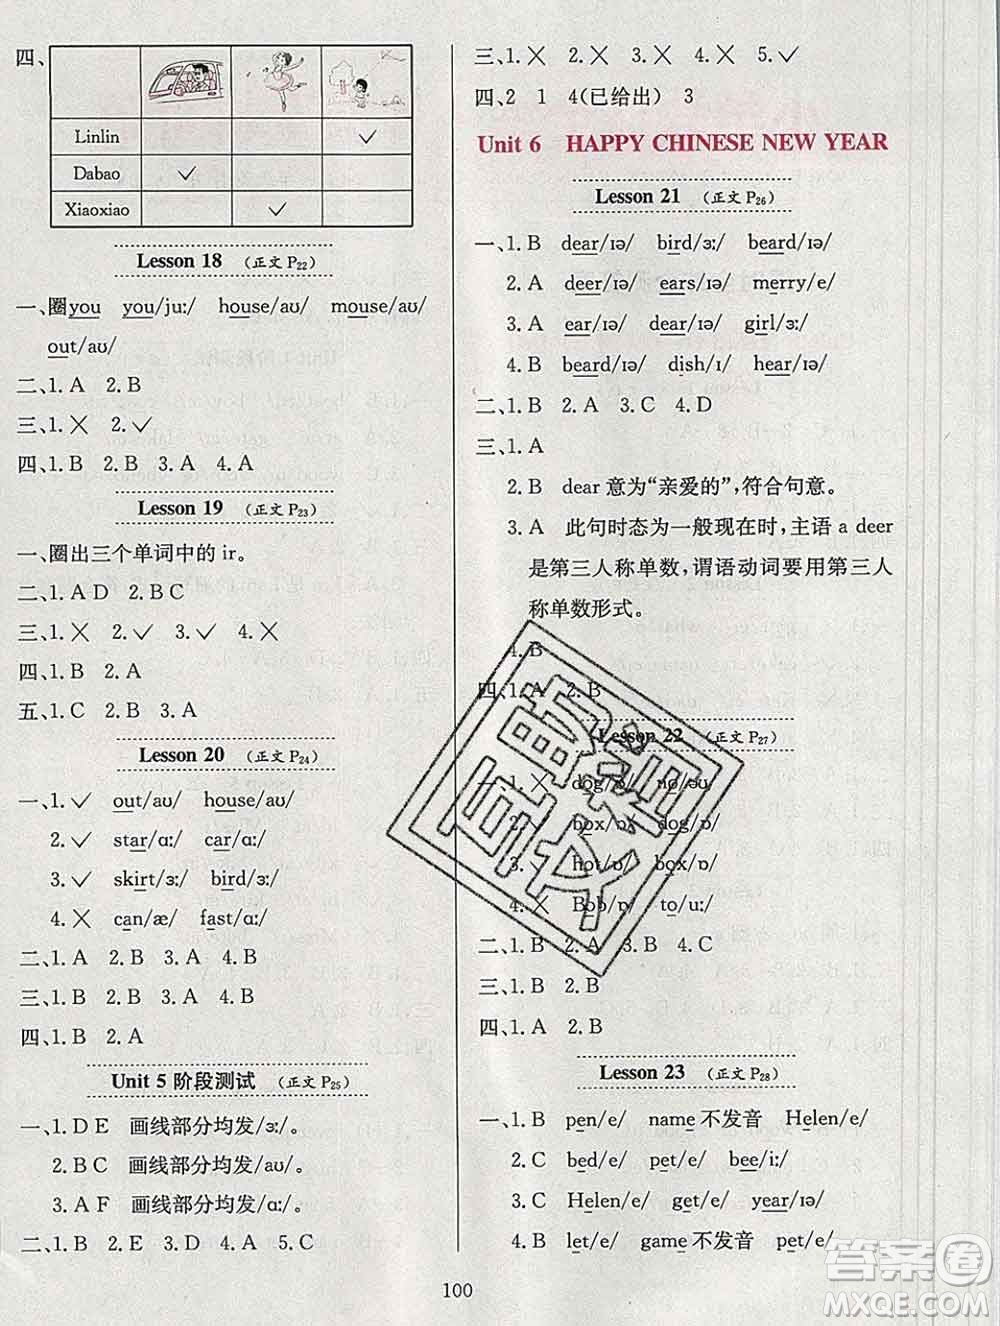 四、
Linlin ✓
Dabao ✓
Xiaoxiao ✓
Lesson 18 (正文 P22)
一、圈you you/juː/ house/aʊ/ mouse/aʊ/
out/aʊ/
二、1. A 2. B
三、1. ✗ 2. ✓
四、1. B 2. B 3. A 4. A
Lesson 19 (正文 P23)
一、圈出三个单词中的 ir。
二、1. A D 2. B C
三、1. ✗ 2. ✓ 3. ✓ 4. ✗
四、1. B 2. A
五、1. C 2. B 3. A
Lesson 20 (正文 P24)
一、1. ✓ out/aʊ/ house/aʊ/
2. ✓ star/ɑː/ car/ɑː/
3. ✓ skirt/ɜː/ bird/ɜː/
4. ✗ can/æ/ fast/ɑː/
二、1. A 2. B 3. A 4. B
三、1. B 2. B 3. A 4. A
四、1. B 2. A
Unit 5 阶段测试 (正文 P25)
一、1. D E 画线部分均发/ɜː/。
2. B C 画线部分均发/aʊ/。
3. A F 画线部分均发/ɑː/。
二、1. B 2. E 3. D 4. A 5. C
三、1. ✗ 2. ✗ 3. ✗ 4. ✗ 5. ✓
四、2 1 4(已给出) 3
Unit 6 HAPPY CHINESE NEW YEAR
Lesson 21 (正文 P26)
一、1. B dear/ɪə/ bird/ɜː/ beard/ɪə/
2. A deer/ɪə/ ears/ɪə/ merry/e/
3. A ear/ɪə/ dear/ɪə/ girl/ɜː/
4. B beard/ɪə/ dish/ɪ/ hear/ɪə/
二、1. B 2. A 3. C 4. D
三、1. A
2. B dear 意为“亲爱的”,符合句意。
3. A 此句时态为一般现在时,主语 a deer
是第三人称单数,谓语动词要用第三人
称单数形式。
4. B
四、1. A 2. B
Lesson 22 (正文 P27)
一、1. ✗ dog/ɒ/ no/əʊ/
2. ✓ box/ɒ/ dog/ɒ/
3. ✓ hot/ɒ/ box/ɒ/
4. ✗ Bob/ɒ/ to/uː/
二、1. B 2. A 3. B 4. C
三、1. B 2. B
四、1. A 2. B
Lesson 23 (正文 P28)
一、1. B pen/e/ name不发音 Helen/e/
2. C bed/e/ pet/e/ bee/iː/
3. C Helen/e/ get/e/ year/ɪə/
4. B let/e/ game不发音 pet/e/
100
答案圈
MXQE.COM